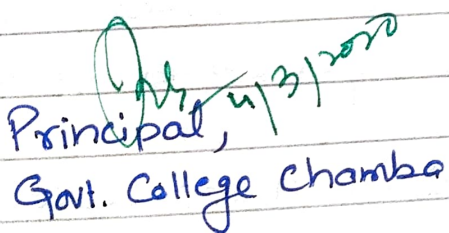 4/3/2020
Principal,
Govt. College Chamba